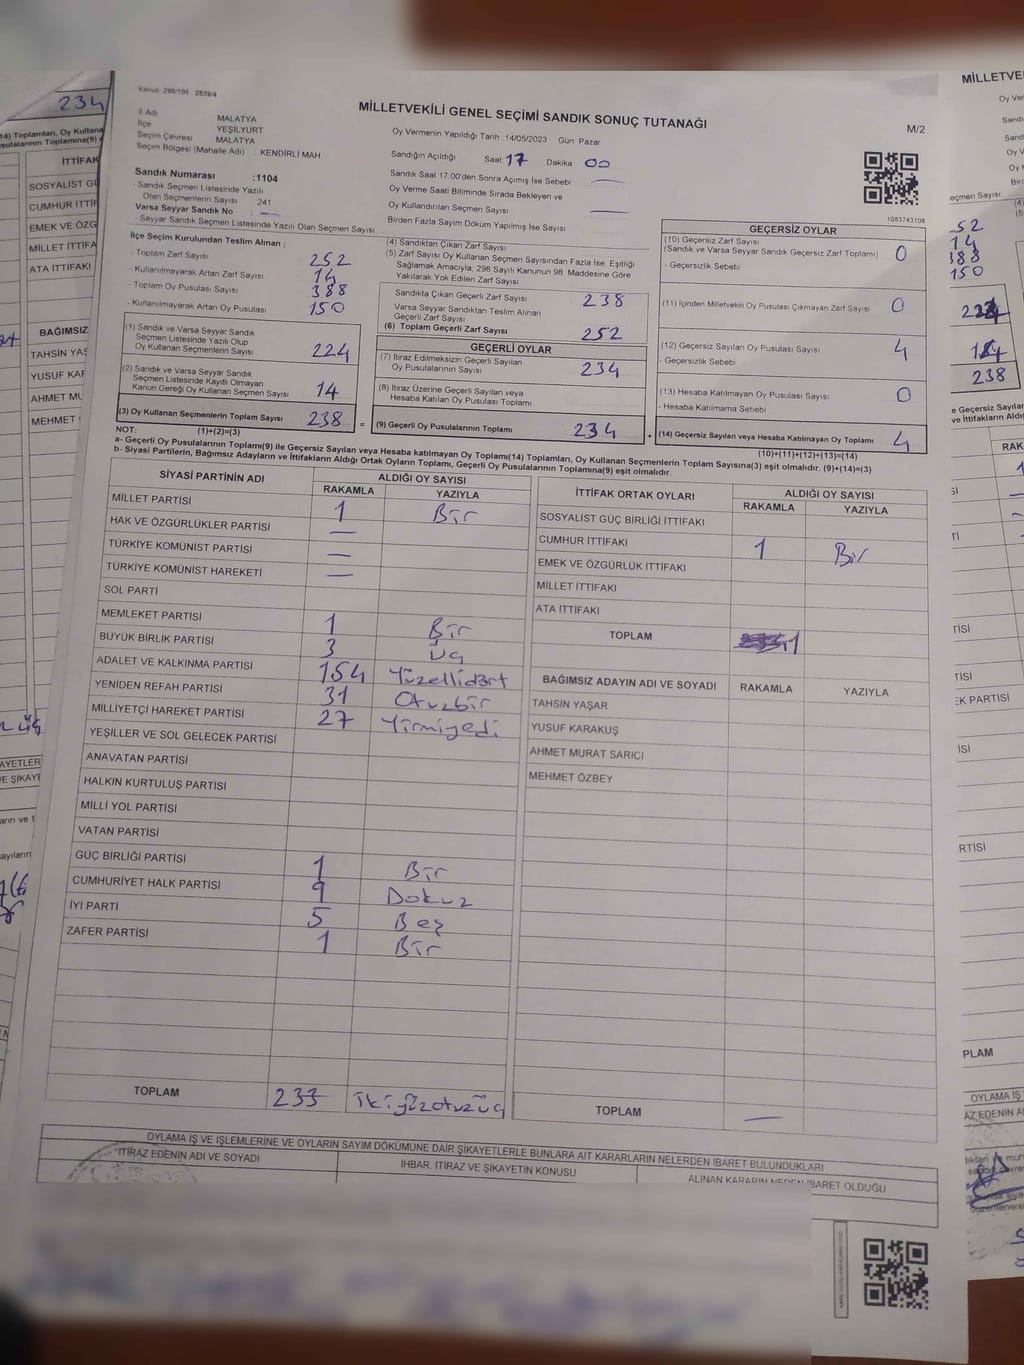 Kanun: 298/105 2839/4
MİLLETVEKİLİ GENEL SEÇİMİ SANDIK SONUÇ TUTANAĞI
M/2
İl Adı MALATYA
İlçe YEŞİLYURT
Seçim Çevresi MALATYA
Seçim Bölgesi (Mahalle Adı) : KENDİRLİ MAH
Oy Vermenin Yapıldığı Tarih : 14/05/2023 Gün Pazar
Sandığın Açıldığı Saat: 17 Dakika 00
Sandık Saat 17:00'den Sonra Açımış İse Sebebi : —
Oy Verme Saati Bitiminde Sırada Bekleyen ve
Oy Kullandırılan Seçmen Sayısı —
Birden Fazla Sayım Döküm Yapılmış İse Sayısı
Sandık Numarası :1104
- Sandık Seçmen Listesinde Yazılı
Olan Seçmenlerin Sayısı : 241
Varsa Seyyar Sandık No : —
- Seyyar Sandık Seçmen Listesinde Yazılı Olan Seçmen Sayısı
1083743108
İlçe Seçim Kurulundan Teslim Alınan ;
- Toplam Zarf Sayısı 252
- Kullanılmayarak Artan Zarf Sayısı 14
- Toplam Oy Pusulası Sayısı 388
- Kullanılmayarak Artan Oy Pusulası 150
(1) Sandık ve Varsa Seyyar Sandık
Seçmen Listesinde Yazılı Olup
Oy Kullanan Seçmenlerin Sayısı 224
(2) Sandık ve Varsa Seyyar Sandık
Seçmen Listesinde Kayıtlı Olmayan
Kanun Gereği Oy Kullanan Seçmen Sayısı 14
(3) Oy Kullanan Seçmenlerin Toplam Sayısı 238
(4) Sandıktan Çıkan Zarf Sayısı
(5) Zarf Sayısı Oy Kullanan Seçmen Sayısından Fazla İse, Eşitliği
Sağlamak Amacıyla; 298 Sayılı Kanunun 98. Maddesine Göre
Yakılarak Yok Edilen Zarf Sayısı
Sandıkta Çıkan Geçerli Zarf Sayısı 238
Varsa Seyyar Sandıktan Teslim Alınan
Geçerli Zarf Sayısı
(6) Toplam Geçerli Zarf Sayısı 252
GEÇERLİ OYLAR
(7) İtiraz Edilmeksizin Geçerli Sayılan
Oy Pusulalarının Sayısı 234
(8) İtiraz Üzerine Geçerli Sayılan veya
Hesaba Katılan Oy Pusulası Toplamı
= (9) Geçerli Oy Pusulalarının Toplamı 234
GEÇERSİZ OYLAR
(10) Geçersiz Zarf Sayısı 0
(Sandık ve Varsa Seyyar Sandık Geçersiz Zarf Toplamı)
- Geçersizlik Sebebi
(11) İçinden Milletvekili Oy Pusulası Çıkmayan Zarf Sayısı 0
(12) Geçersiz Sayılan Oy Pusulası Sayısı 4
- Geçersizlik Sebebi
(13) Hesaba Katılmayan Oy Pusulası Sayısı 0
- Hesaba Katılmama Sebebi
+ (14) Geçersiz Sayılan veya Hesaba Katılmayan Oy Toplamı 4
NOT: (1)+(2)=(3)
(10)+(11)+(12)+(13)=(14)
a- Geçerli Oy Pusulalarının Toplamı(9) ile Geçersiz Sayılan veya Hesaba katılmayan Oy Toplamı(14) Toplamları, Oy Kullanan Seçmenlerin Toplam Sayısına(3) eşit olmalıdır. (9)+(14)=(3)
b- Siyasi Partilerin, Bağımsız Adayların ve İttifakların Aldığı Ortak Oyların Toplamı, Geçerli Oy Pusulalarının Toplamına(9) eşit olmalıdır.
SİYASİ PARTİNİN ADI ALDIĞI OY SAYISI
RAKAMLA YAZIYLA
MİLLET PARTİSİ 1 Bir
HAK VE ÖZGÜRLÜKLER PARTİSİ —
TÜRKİYE KOMÜNİST PARTİSİ —
TÜRKİYE KOMÜNİST HAREKETİ —
SOL PARTİ
MEMLEKET PARTİSİ 1 Bir
BÜYÜK BİRLİK PARTİSİ 3 Üç
ADALET VE KALKINMA PARTİSİ 154 Yüzellidört
YENİDEN REFAH PARTİSİ 31 Otuzbir
MİLLİYETÇİ HAREKET PARTİSİ 27 Yirmiyedi
YEŞİLLER VE SOL GELECEK PARTİSİ
ANAVATAN PARTİSİ
HALKIN KURTULUŞ PARTİSİ
MİLLİ YOL PARTİSİ
VATAN PARTİSİ
GÜÇ BİRLİĞİ PARTİSİ 1 Bir
CUMHURİYET HALK PARTİSİ 9 Dokuz
İYİ PARTİ 5 Beş
ZAFER PARTİSİ 1 Bir
TOPLAM 233 İkiyüzotuzüç
İTTİFAK ORTAK OYLARI ALDIĞI OY SAYISI
RAKAMLA YAZIYLA
SOSYALİST GÜÇ BİRLİĞİ İTTİFAKI
CUMHUR İTTİFAKI 1 Bir
EMEK VE ÖZGÜRLÜK İTTİFAKI
MİLLET İTTİFAKI
ATA İTTİFAKI
TOPLAM 1
BAĞIMSIZ ADAYIN ADI VE SOYADI RAKAMLA YAZIYLA
TAHSİN YAŞAR
YUSUF KARAKUŞ
AHMET MURAT SARICI
MEHMET ÖZBEY
TOPLAM —
OYLAMA İŞ VE İŞLEMLERİNE VE OYLARIN SAYIM DÖKÜMÜNE DAİR ŞİKAYETLERLE BUNLARA AİT KARARLARIN NELERDEN İBARET BULUNDUKLARI
İTİRAZ EDENİN ADI VE SOYADI
İHBAR, İTİRAZ VE ŞİKAYETİN KONUSU
ALINAN KARARIN NEDEN İBARET OLDUĞU